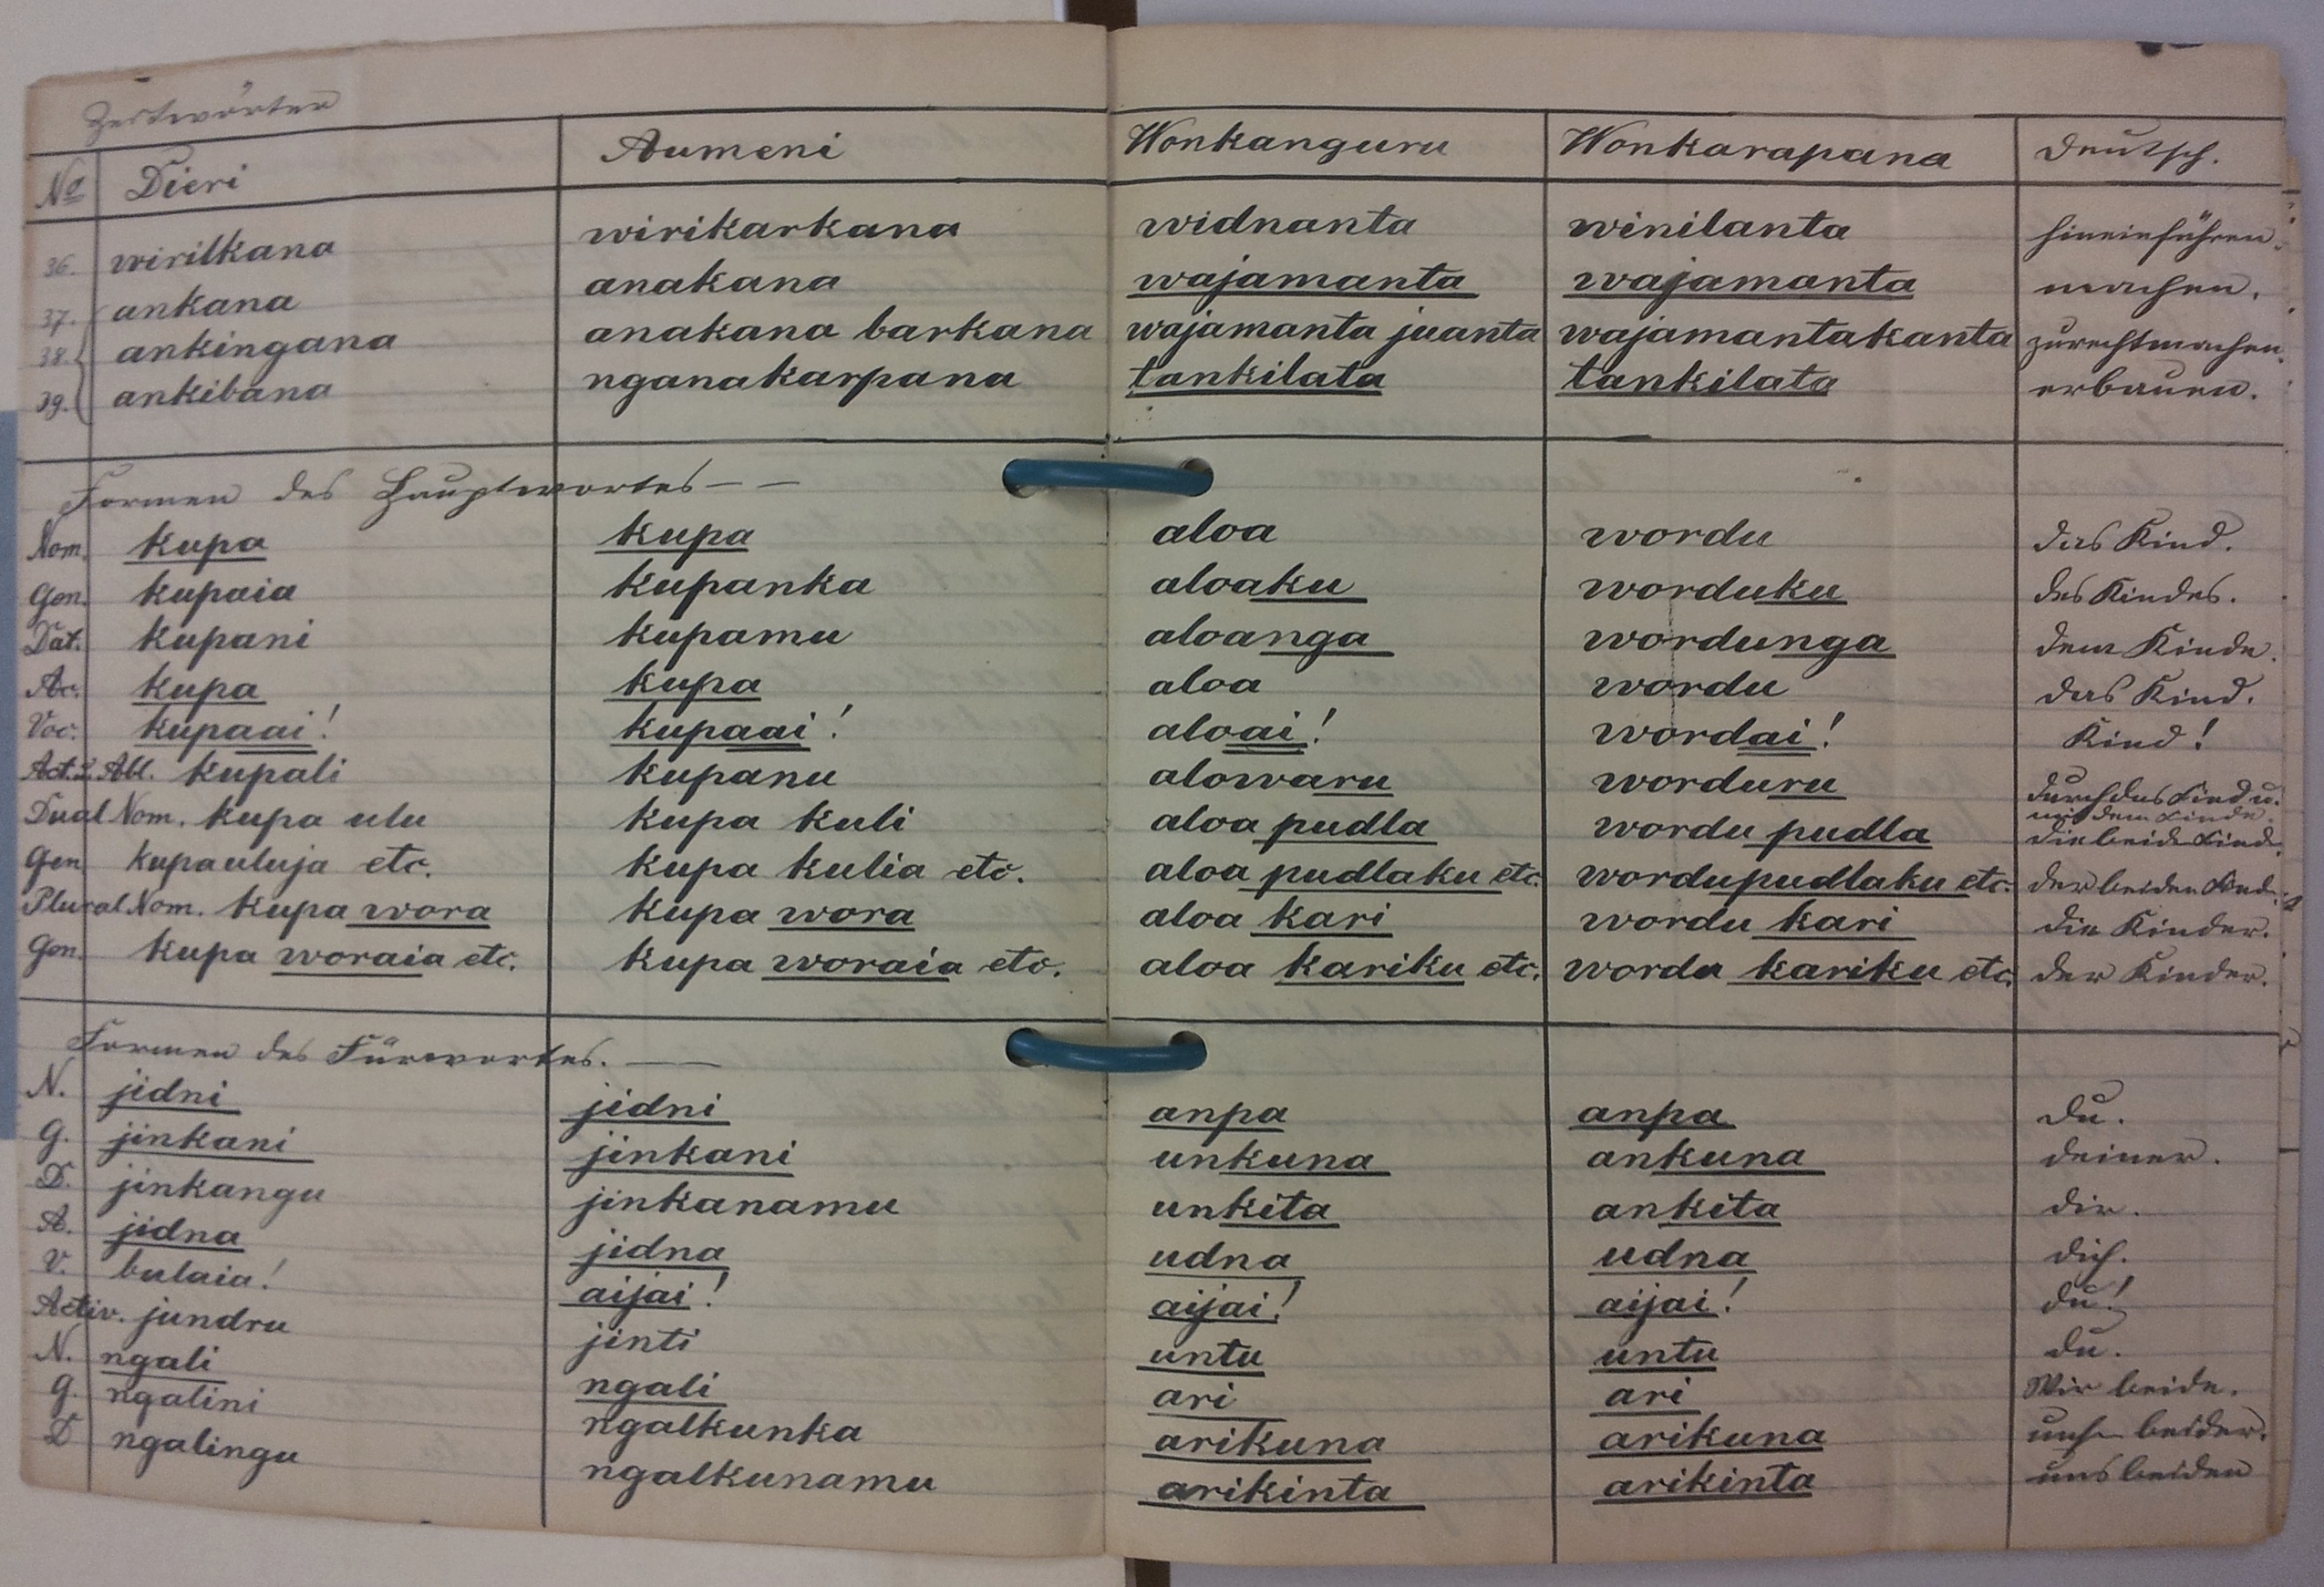 Zeitwörter
No Dieri Aumeni Wonkanguru Wonkarapana Deutsch.
36. wirilkana wirikarkana widnanta winilanta hineinführen.
37. ankana anakana wajamanta wajamanta machen.
38. ankingana anakana barkana wajamanta juanta wajamantakanta zurechtmachen.
39. ankibana nganakarpana tankilata tankilata erbauen.
Formen des Hauptwortes — —
Nom. kupa kupa aloa wordu das Kind.
Gen. kupaia kupanka aloaku worduku des Kindes.
Dat. kupani kupamu aloanga wordunga dem Kinde.
Ac. kupa kupa aloa wordu das Kind.
Voc. kupaai! kupaai! aloai! wordai! Kind!
Act. & Abl. kupali kupanu alowaru worduru durch das Kind u.
von dem Kinde.
Dual Nom. kupa ulu kupa kuli aloa pudla wordu pudla die beide Kinde.
Gen kupauluja etc. kupa kulia etc. aloa pudlaku etc. wordupudlaku etc. der beiden Kinder
Plural Nom. kupa wora kupa wora aloa kari wordu kari die Kinder.
Gen. kupa woraia etc. kupa woraia etc. aloa kariku etc. wordu kariku etc. der Kinder.
Formen des Fürwortes. —
N. jidni jidni anpa anpa du.
G. jinkani jinkani unkuna ankuna deiner.
D. jinkangu jinkanamu unkita ankita dir.
A. jidna jidna udna udna dich.
V. bulaia! aijai! aijai! aijai! du!
Activ. jundru jinti untu untu du.
N. ngali ngali ari ari Wir beide.
G. ngalini ngalkunka arikuna arikuna unser beider.
D ngalingu ngalkunamu arikinta arikinta uns beiden